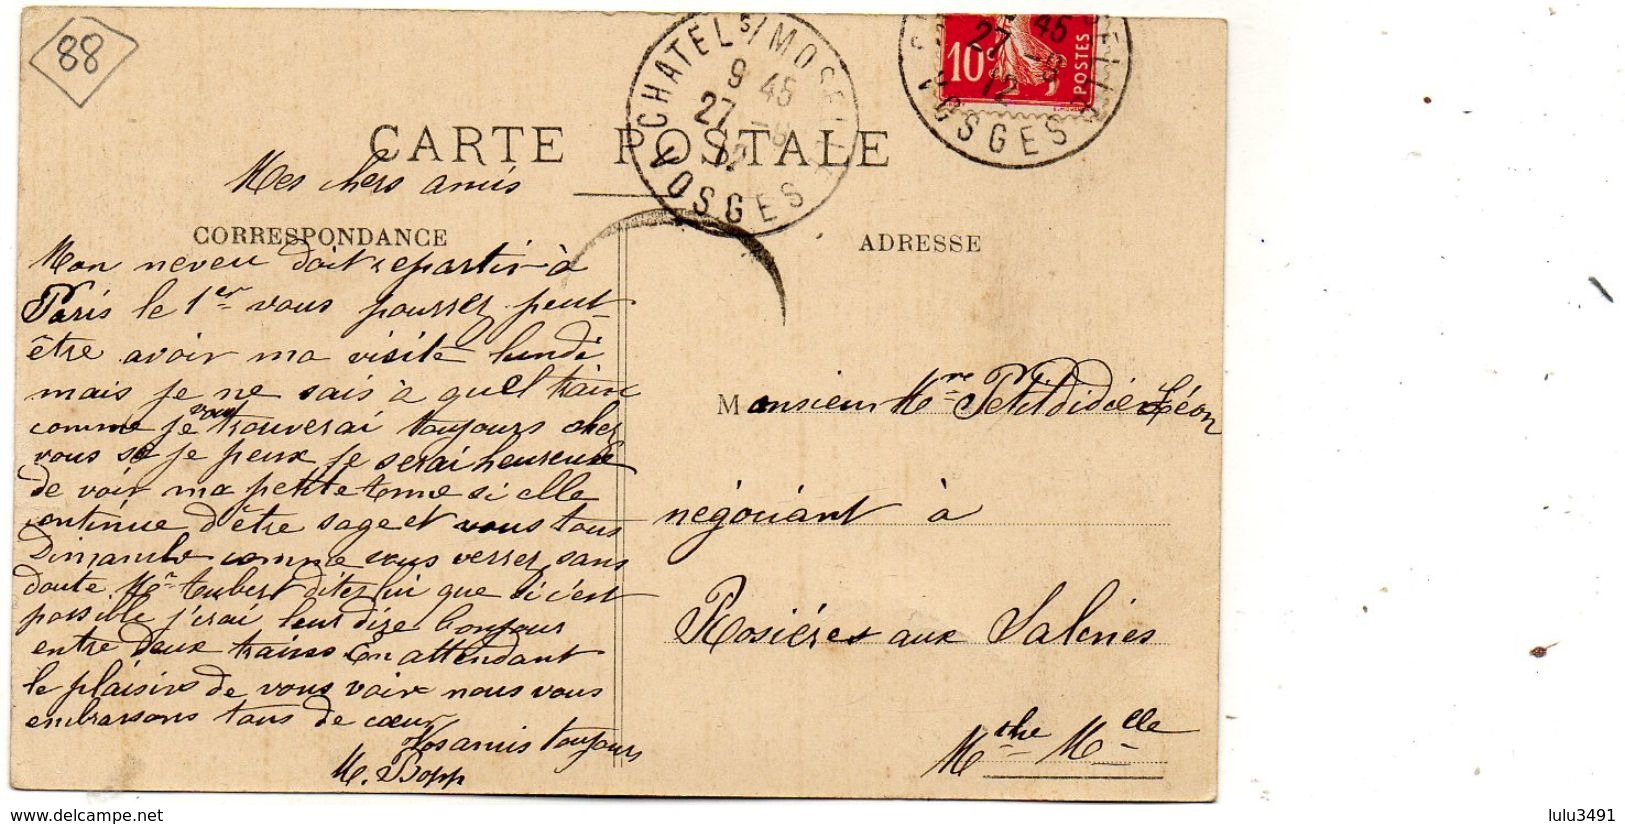 88
CHATEL s/ MOSELLE
9 45
27 -9
12
VOSGES
10c
POSTES
27 -9
12
45
VOSGES
CARTE POSTALE
Mes chers amis
CORRESPONDANCE
ADRESSE
Mon neveu doit repartir à
Paris le 1er vous pourrez peut-
être avoir ma visite lundi
mais je ne sais à quel train
comme je vous trouverai toujours chez
vous si je peux je serai heureuse
de voir ma petite tonne si elle
continue d'être sage et vous tous
Dimanche comme vous verrez sans
doute Mr Aubert dites lui que si c'est
possible j'irai leur dire bonjour
entre deux trains En attendant
le plaisir de vous voir nous vous
embrassons tous de cœur
Vos amis toujours
M. Bopp
Monsieur Mme Petitdidier Léon
négociant à
Rosières aux Salines
Mthe Mlle
lulu3491